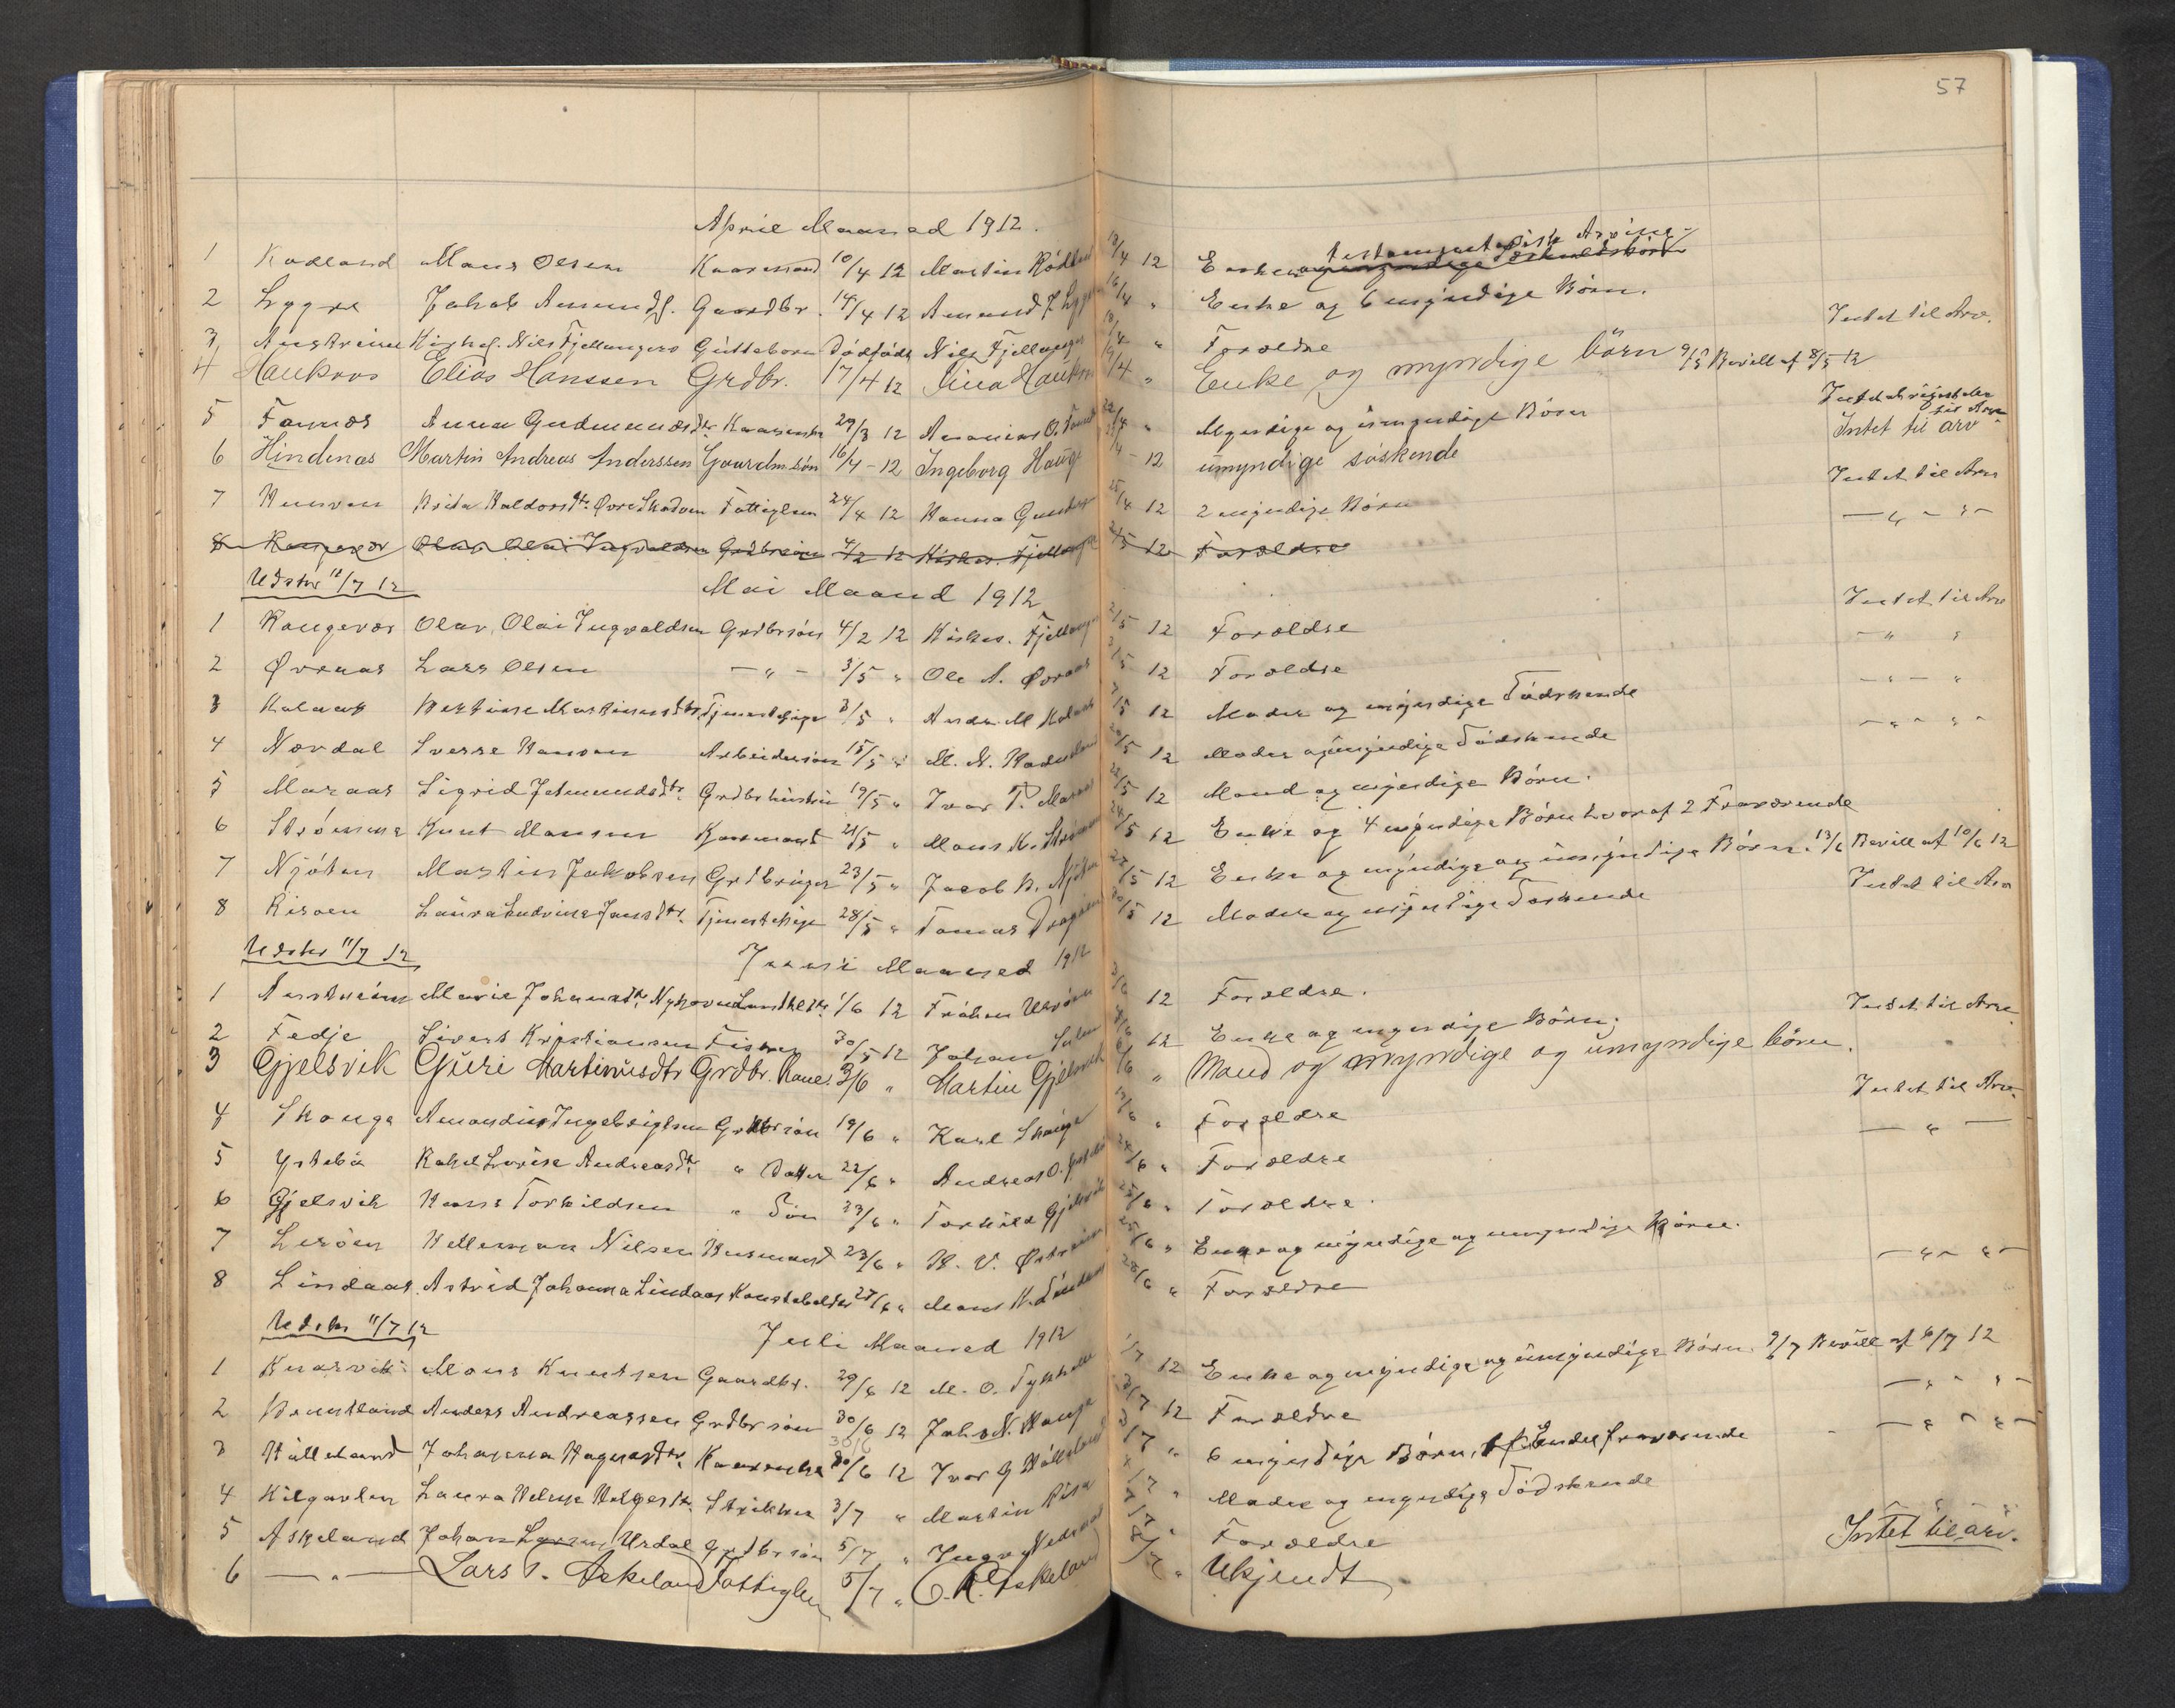 57
April Maaned 1912.
1 Radland Mons Olsen Kaarmand 10/4 12 Martin Rödland 13/4 12 Enke testamentarisk Arving
2 Lygre Jakob Amunds. Gaardbr. 14/4 12 Amund J Lygre 16/4 " Enke og 6 myndige Börn.
3 Austreim Kirkes. Nils Fjellangers Gutteborn Dödfödt Nils Fjellanger " Forældre Intet til Arv.
4 Haukøos Elias Hanssen Grdbr. 17/4 12 19/4 " Enke og myndige börn 9/5 Bevill af 8/5 12
5 Fonnes Anna Gudmundsdtr Kaarenke 29/3 12 Ananias O. 22/4 " Myndige og umyndige Börn Intet til Arv
6 Hindenes Martin Andreas Anderssen Gaardm.søn 16/4 - 12 Ingeborg Haug /4 - 12 umyndige söskende Intet til arv
7 Hunven Brita Haldorsdtr Øvre Fattiglem 24/4 12 Hanna 25/4 12 2 myndige Börn Intet til Arv
8 Olav Olai Ingvaldsen Grdbrsön 4/2 12 Kirkes. Fjellanger 2/5 12 Forældre — " — " —
Udskr 11/7 12
Mai Maaned 1912
1 Rongevær Olav, Olai Ingvaldsen Grdbrsön 4/2 12 Kirkes. Fjellanger 2/5 12 Forældre Intet til Arv
2 Øvraas Lars Olsen — " — 3/5 " Ole A. Øvraas 3/5 12 Forældre — " "
3 Kolaas Bertine Martinusdtr Tjenestepige 3/5 " Andr. M Kolaas 7/5 12 Moder og myndige Södskende — " — "
4 Nordal Sverre Hansen Arbeidersön 15/5 " M. N. 20/5 12 Moder og umyndige Södskende — " — " —
5 Maraas Sigrid Jetmundsdtr. Grdbrhustru 19/5 " Ivar P. Maraas 22/5 12 Mand og myndige Börn.
6 Strömme Knut Monsen Kaarmand 21/5 " Mons K. Strömme 24/5 12 Enke og 4 myndige Börn hvoraf 2 Fraværende
7 Njöten Martin Jakobsen Grdbruger 23/5 " Jacob N. Njöten 27/5 12 Enke og myndige og umyndige Börn. 13/6 Bevill af 10/6 12
8 Risøen Laura Ludvine Jansdtr. Tjenestepige 28/5 " Tomas 30/5 12 Moder og myndige Söskende Intet til Arv
Udskr 11/7 12
Juni Maaned 1912
1 Austreim Marie Johansdtr. 1/6 12 3/6 12 Forældre.
2 Fedje Sivert Kristiansen Fisker 30/5 12 Johan /6 12 Enke og myndige Börn. Intet til Arv
3 Gjelsvik Guri Martinusdtr Grdbr. Kone 3/6 " Martin Gjelsvik 6/6 " Mand og myndige og umyndige börn.
4 Skauge Amandus Ingebrigtsen Grdbrsön 19/6 " Karl Skauge " Forældre Intet til Arv.
5 Ystebö Rakel Lovise Andreasdtr. " Datter 22/6 " Andreas O. 24/6 " Forældre — " —
6 Gjelsvik Hans Torkildsen " Sön 23/6 " Torkild Gjelsvik 25/6 " Forældre.
7 Leröen Willemann Nilsen Husmand 23/6 " H. V. 25/6 " Enke og myndige og umyndige Börn.
8 Lindaas Astrid Johanna Lindaas 27/6 " Mons K. Lindaas 28/6 " Forældre — " — " —
Udskr 11/7 12
Juli Maaned 1912
1 Knarvik Mons Knutsen Gaardbr. 29/6 12 M. O. 1/7 12 Enke og myndige og umyndige Börn. 9/7 Bevill af 6/7 12
2 Bruntland Anders Andreassen Grdbrsön 30/6 12 Johs. N. Hauge 3/7 12 Forældre — " — " —
30/6
3 Hilleland Johanna Magnusdtr. Kaarenke 30/6 12 Ivar G Hilleland 3/7 " 6 myndige Börn, fraværende — " — " —
4 Kilgarden Laura 3/7 " Martin Risa /7 " Moder og myndige Södskende
5 Askeland Johan Larsen Urdal Grdbrsön 5/7 " Ingv. 7/7 " Forældre
6 — " — Lars S. Askeland Fattiglem 5/7 " O. R. Askeland 8/7 " Ukjendt Intet til arv.